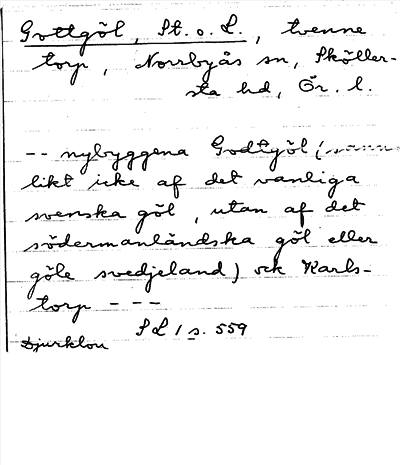 Gottgöl, St. o. L., tvenne
torp, Norrbyås sn, Sköller-
sta hd, Ör. l.
-- nybyggena Godtgöl (sanno-
likt icke af det vanliga
svenska göl, utan af det
södermanländska göl eller
göle svedjeland) ock Karls-
torp ---
SL 1 s. 559
Djurklou